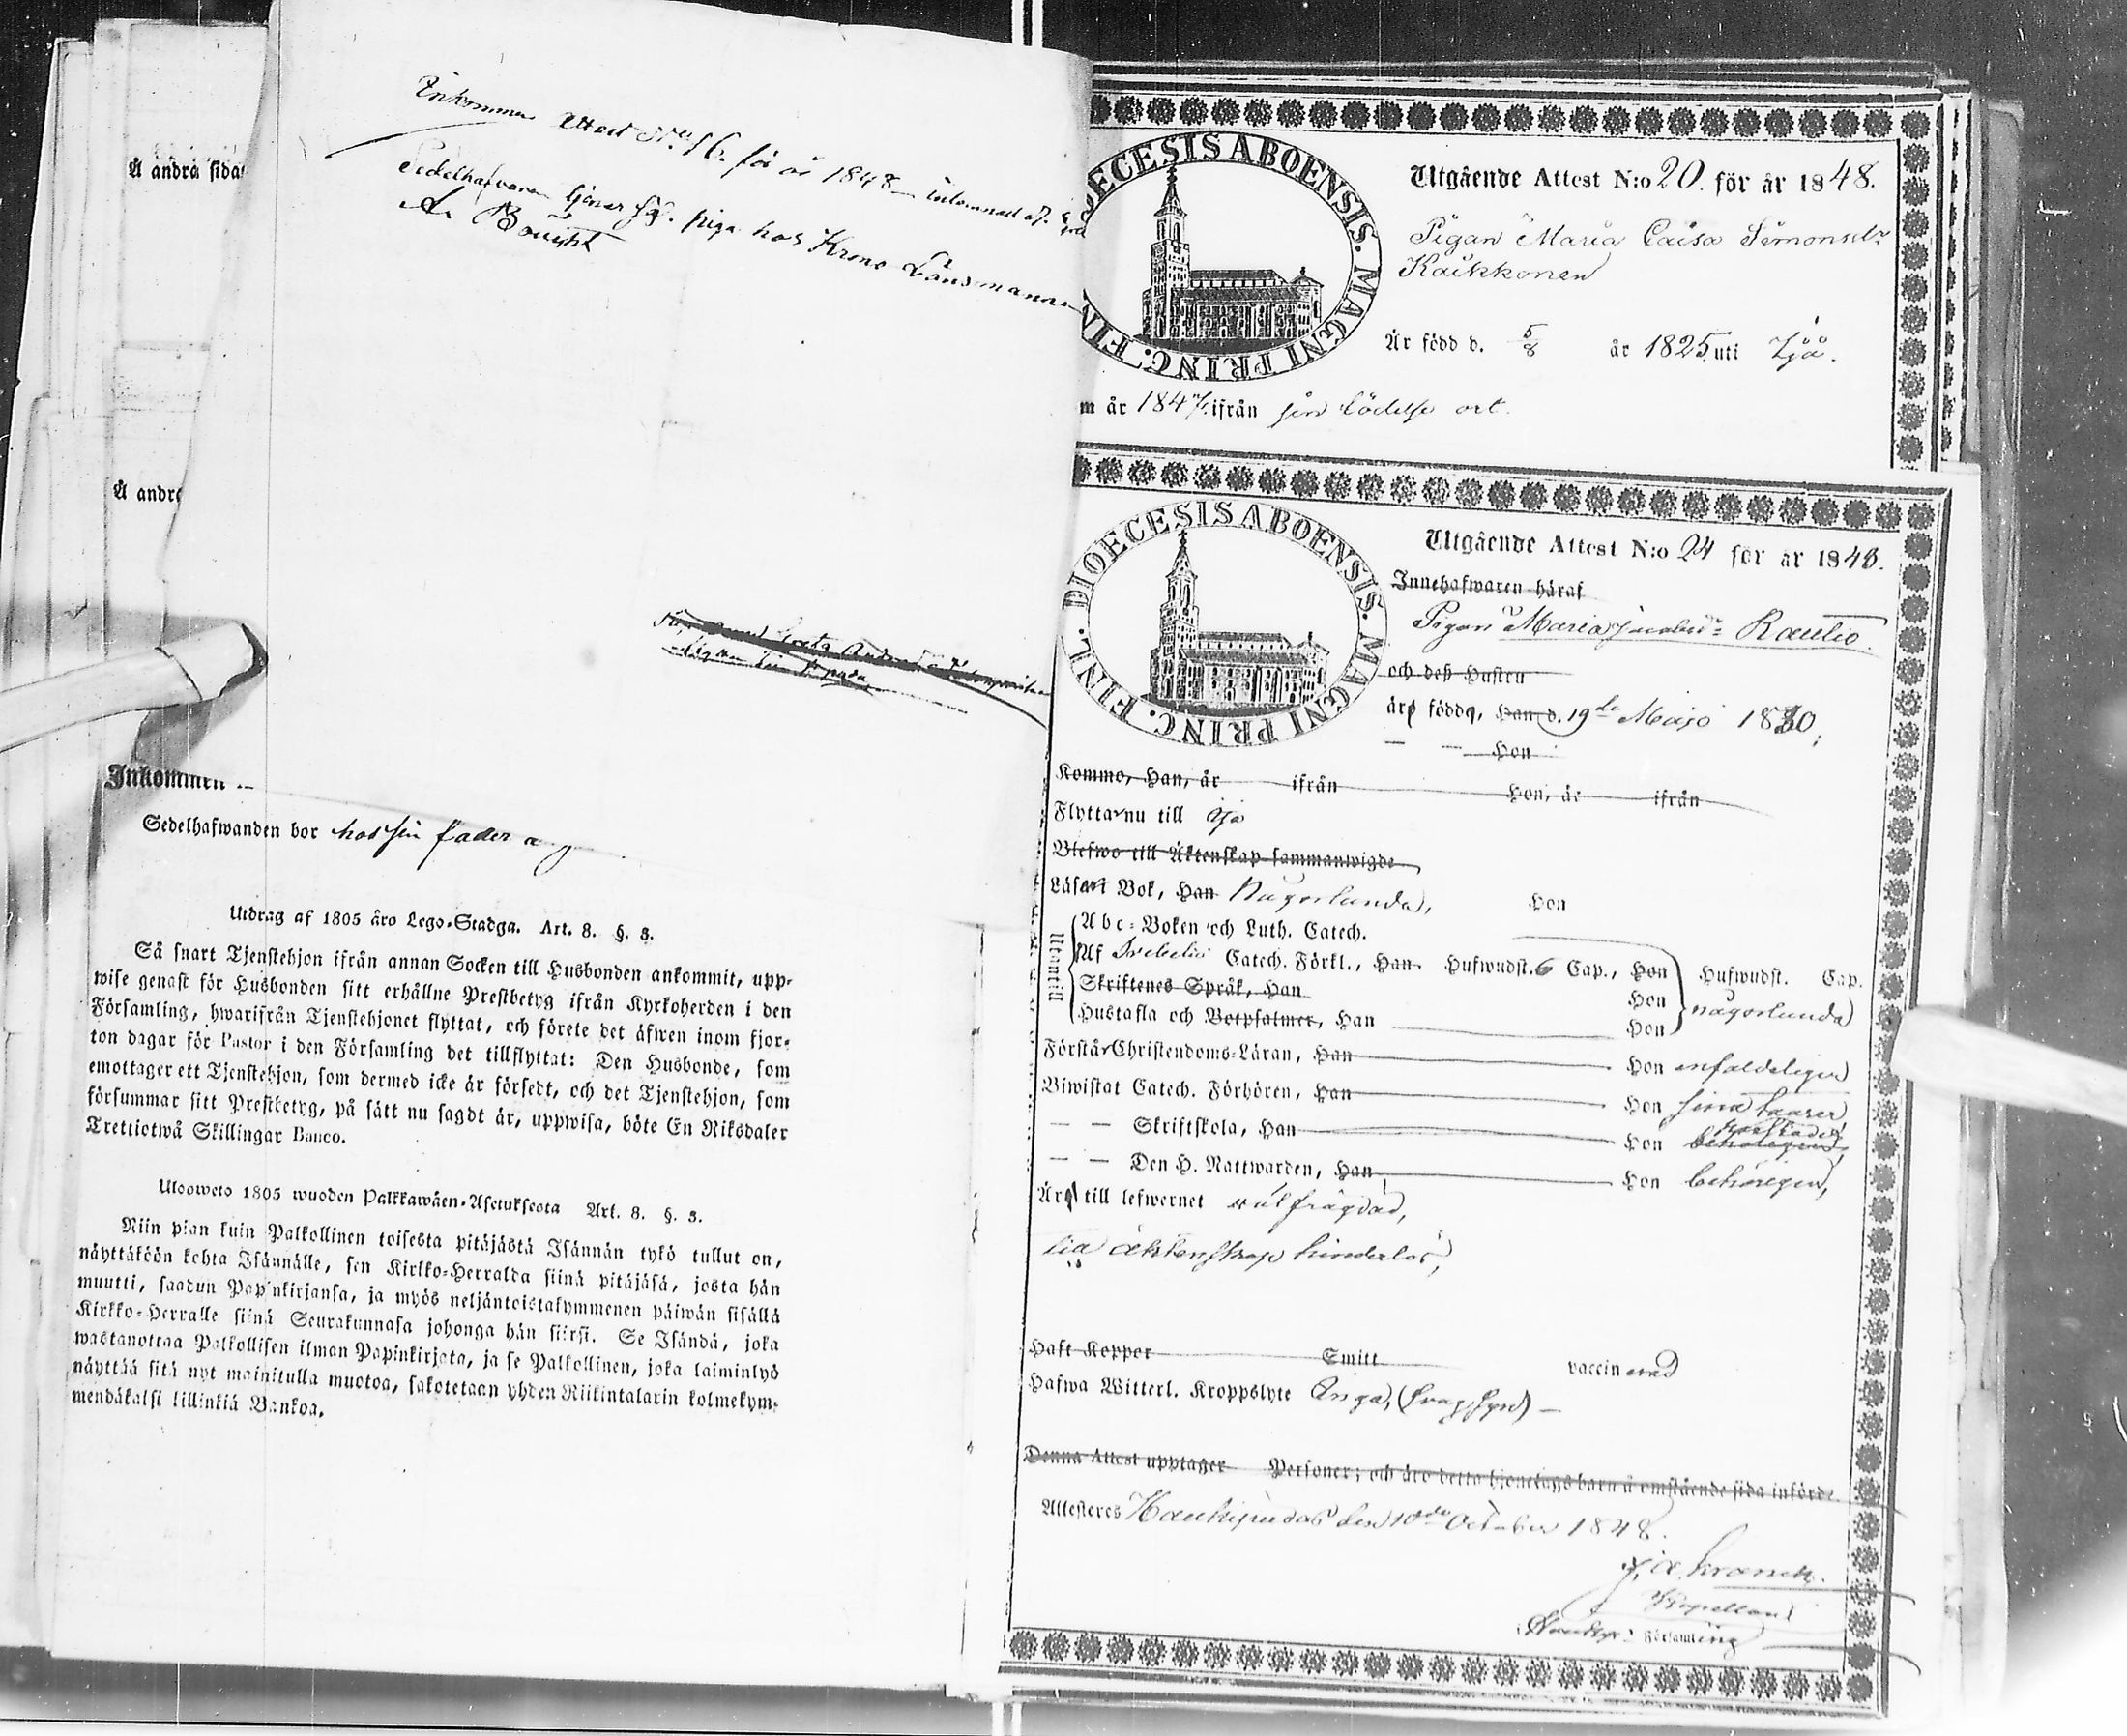 Å andra sida
Å andra
Inkommen Attest N:o 16. för år 1848
Sedelhafvaren tjenar ss. piga hos Krono Länsmannen
Inkommen
Sedelhafwanden bor hos sin fader
Utdrag af 1805 åro Lego-Stadga. Art. 8. §. 3.
Så snart Tjenstehjon ifrån annan Socken till Husbonden ankommit, upp-
wise genast för Husbonden sitt erhållne Prestbetyg ifrån Kyrkoherden i den
Församling, hwarifrån Tjenstehjonet flyttat, och förete det äfwen inom fjor-
ton dagar för Pastor i den Församling det tillflyttat: Den Husbonde, som
emottager ett Tjenstehjon, som dermed icke är försedt, och det Tjenstehjon, som
försummar sitt Prestbetyg, på sätt nu sagdt är, uppwisa, böte En Riksdaler
Trettiotwå Skillingar Banco.
Ulosweto 1805 wuoden Palkkawäen-Asetuksesta Art. 8. §. 3.
Niin pian kuin Palkollinen toisesta pitäjästä Isännän tykö tullut on,
näyttäköön kohta Isännälle, sen Kirkko-Herralda siinä pitäjäsä, josta hän
muutti, saadun Papinkirjansa, ja myös neljäntoistakymmenen päiwän sisällä
Kirkko-Herralle siinä Seurakunnasa johonga hän siirsi. Se Isändä, joka
wastanottaa Palkollisen ilman Papinkirjata, ja se Palkollinen, joka laiminlyö
näyttää sitä nyt mainitulla muotoa, sakotetaan yhden Riikintalarin kolmekym-
mendäkaksi killinkiä Bankoa.
DIOECESIS ABOENSIS. MAGNI PRINC. FIN
Utgående Attest N:o 20. för år 1848.
Pigan Maria Caisa Simonsdr
Kaikkonen
Är född d. 5/8 år 1825 uti Ijå.
m år 1847 ifrån sin födelse ort.
DIOECESIS ABOENSIS. MAGNI PRINC. FINL.
Utgående Attest N:o 24 för år 1848.
Innehafwaren häraf
Pigan Maria Jacobsdr Rautio
och deß Hustru
äro födde, Han d. 19de Majo 1830,
— — Hon
Kommo, Han, år ifrån Hon, år ifrån
Flyttar nu till Ijo
Blefwo till Äktenskap sammanwigde
Läsa i Bok, Han någorlunda, Hon
Utantill
Abc-Boken och Luth. Catech.
Af Svebelii Catech. Förkl., Han Hufwudst. 6 Cap., Hon Hufwudst. Cap.
Skriftenes Språk, Han Hon någorlunda
Hustafla och Botpsalmer, Han Hon
Förstår Christendoms-Läran, Han Hon enfaldeligen
Biwistat Catech. Förhören, Han Hon sina
— — Skriftskola, Han Hon
— — Den H. Nattwarden, Han Hon behörigen,
Äro till lefwernet wälfrägdad,
till äktenskap hinderlös,
Haft Koppor Smitt vaccinerad
Hafwa Witterl. Kroppslyte inga, (svag syn) —
Denna Attest upptager Personer; och äro detta hjonelags barn å omstående sida införde
Attesteres Haukipudas den 10de October 1848.
Kapellan
Haukip: Församling